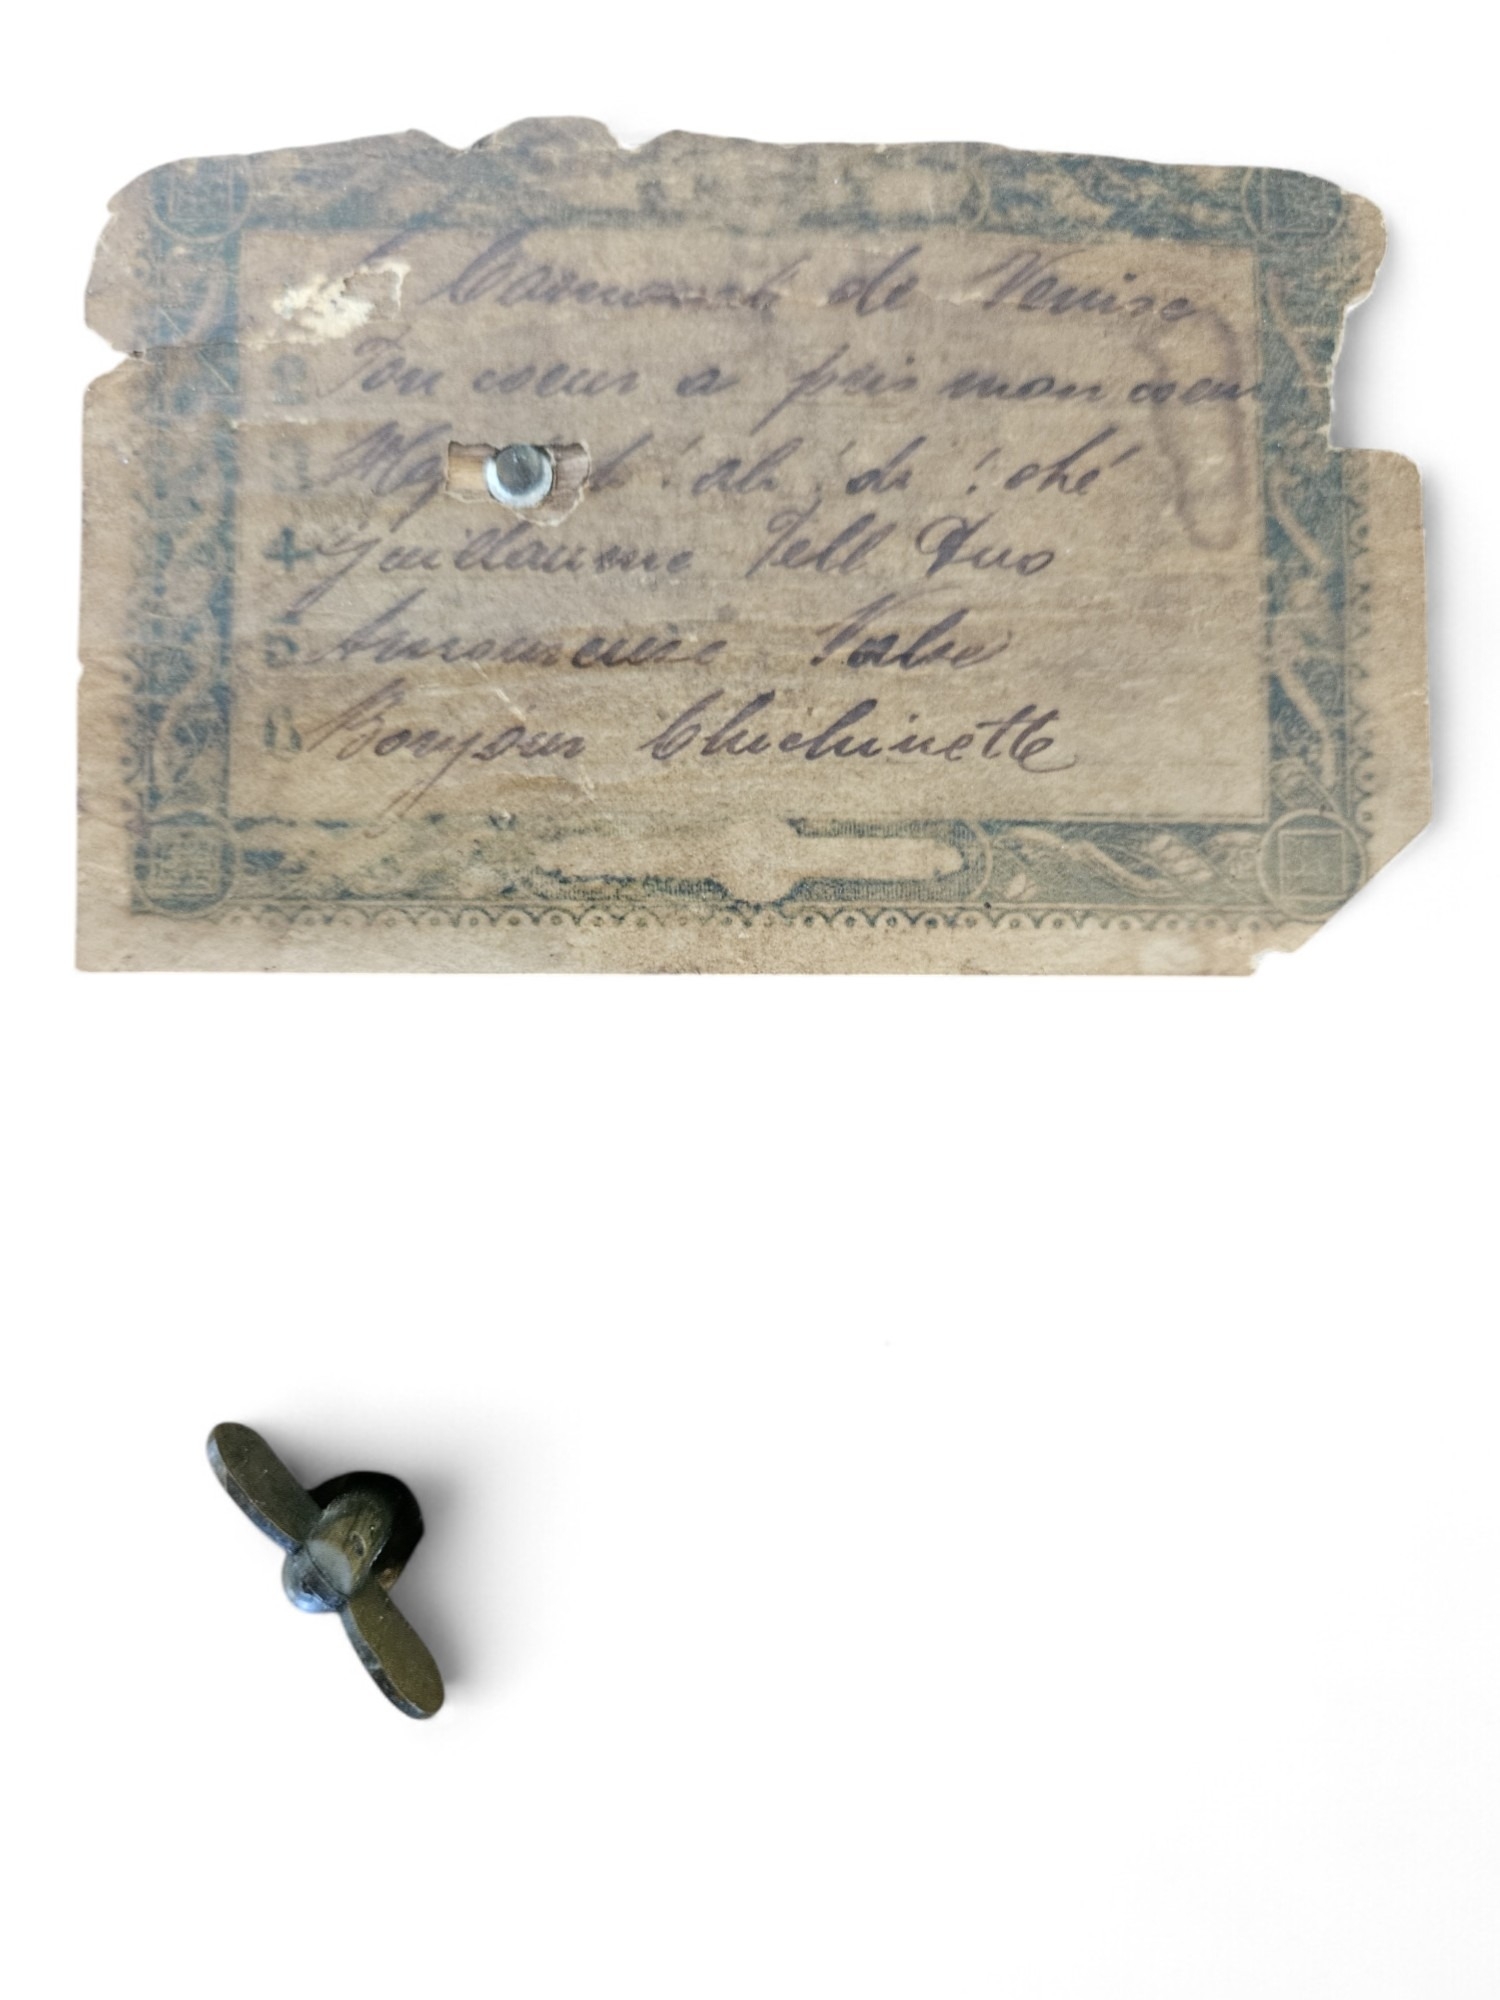 Carnaval de Venise
2 Ton coeur a pris mon coeur
3 di ! ohé
4 Guillaume Tell Duo
5 Amoureuse Valse
6 Bonjour Chichinette